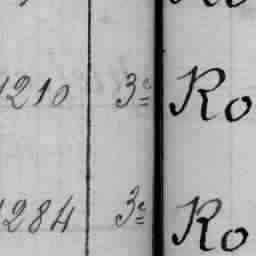 1210 3e Ro
1284 3e Ro